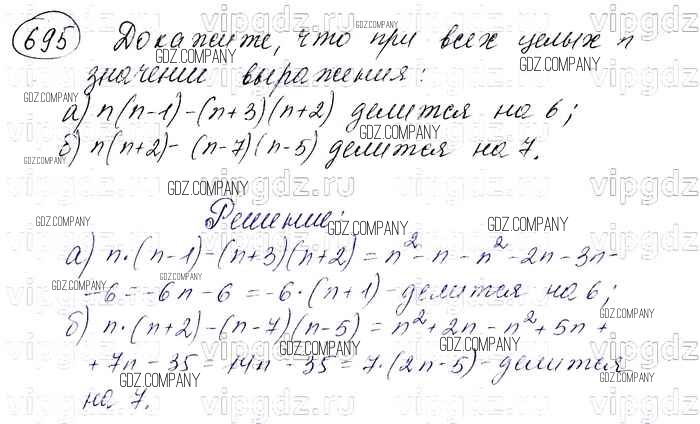 695 Докажите, что при всех целых n
значении выражения:
а) n(n-1)-(n+3)(n+2) делится на 6;
б) n(n+2)-(n-7)(n-5) делится на 7.
Решение:
а) n·(n-1)-(n+3)(n+2) = n²-n-n²-2n-3n-
-6 = -6n-6 = -6·(n+1)-делится на 6;
б) n·(n+2)-(n-7)(n-5) = n²+2n-n²+5n+
+7n-35 = 14n-35 = 7·(2n-5)-делится
на 7.